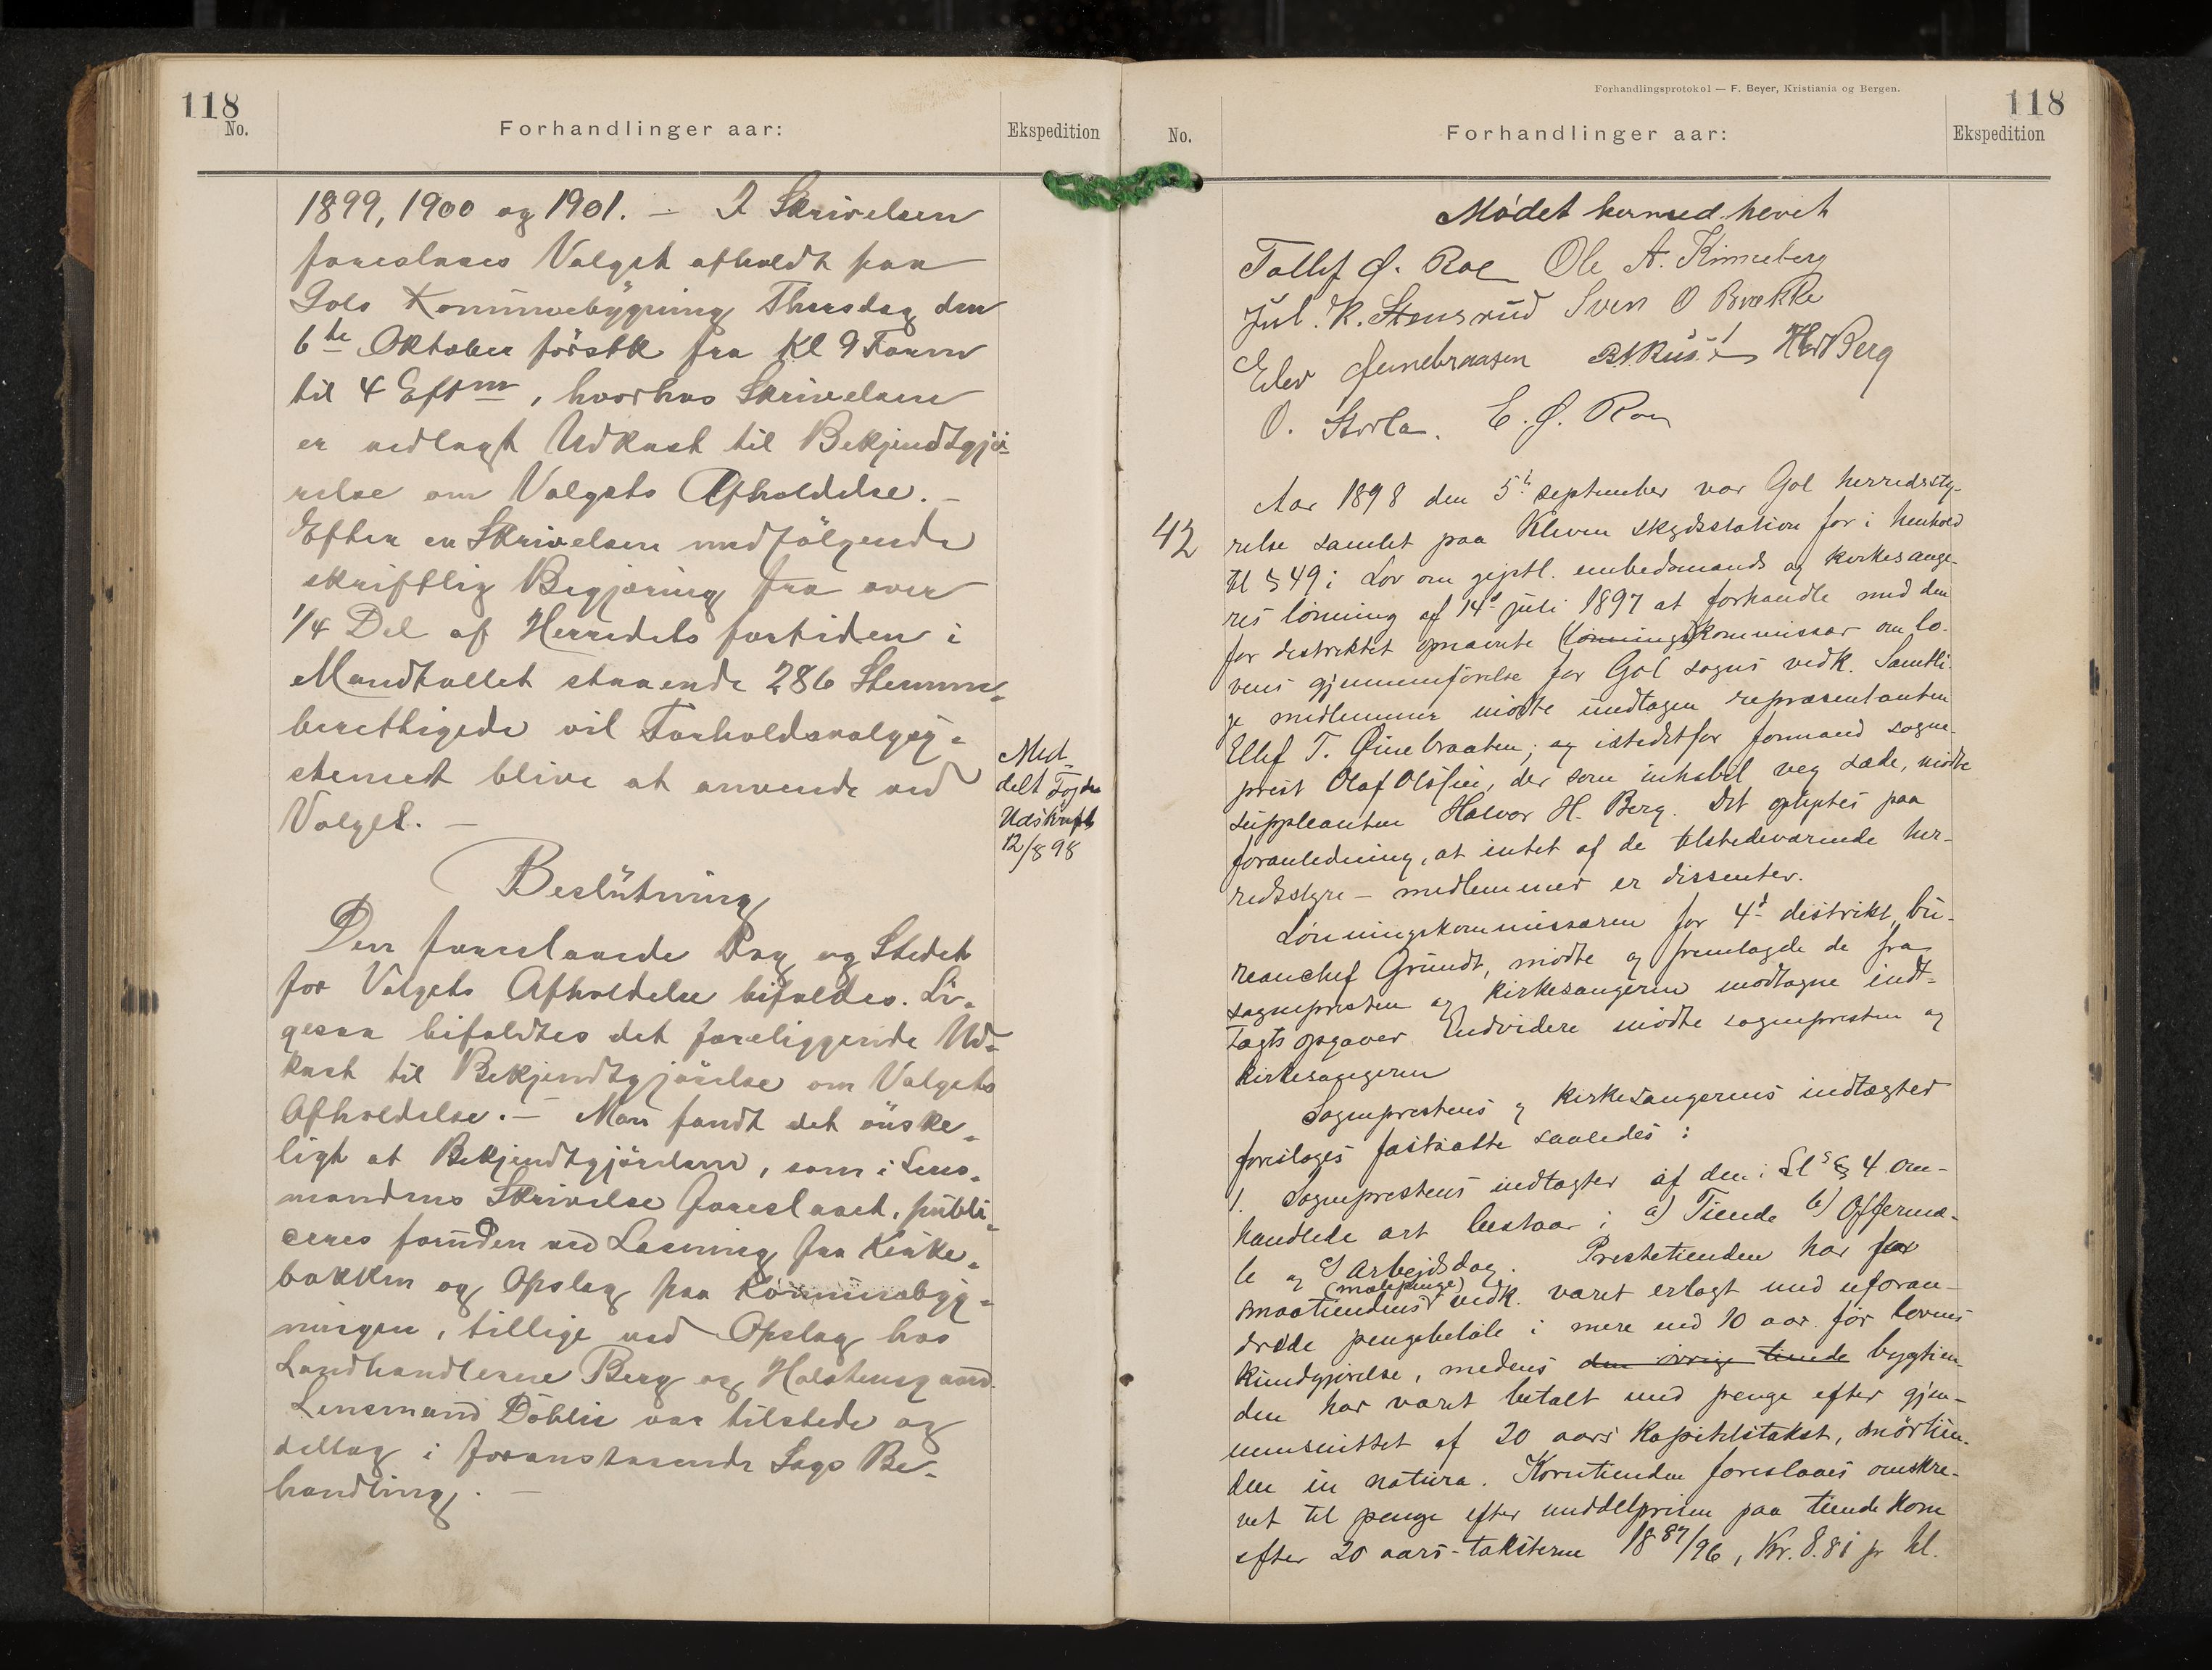 118
No.
Forhandlinger aar:
Ekspedition
1899, 1900 og 1901. – I Skrivelsen
foreslaaes Valget afholdt paa
Gols Kommunebygning Thorsdag den
6te Oktober förstk fra Kl 9 Form
til 4 Eftm, hvorhos Skrivelsen
er vedlagt Udkast til Bekjendtgjö-
relse om Valgets Afholdelse. –
Efter en Skrivelsen medfölgende
skriftlig Begjæring fra over
1/4 Del af Herredets fortiden i
Mandtallet staaende 286 Stemme-
berettigede vil Forholdsvalgsy-
stemet blive at anvende ved
Valget. –
Med-
delt Fogden
Udskrift
12/8 98
Beslutning
Den foreslaaede Dag og Stedet
for Valgets Afholdelse bifaldes. Li-
gesaa bifaldtes det foreliggende Ud-
kast til Bekjendtgjörelse om Valgets
Afholdelse. – Man fandt det önske-
ligt at Bekjendtgjörelsen, som i Lens-
mandens Skrivelse foreslaaet, publi-
ceres foruden ved Læsning fra Kirke-
bakken og Opslag paa Kommunebyg-
ningen, tillige ved Opslag hos
Landhandlerne Berg og Halstensgaard.
Lensmand Döhlie var tilstede og
deltog i foranstaaende Sags Be-
handling. –
Forhandlingsprotokol — F. Beyer, Kristiania og Bergen.
118
No.
Forhandlinger aar:
Ekspedition
Mödet hermed hevet
Tollef Ø. Roe Ole A. Kinneberg
Jul. K. Stensrud Sven O Brække
Elev
O. Storla. E. Ø. Roe
Aar 1898 den 5te september var Gol herredssty-
42
relse samlet paa Kleven skydsstation for i henhold
til § 49 i Lov om gejstl. embedsmænds og kirkesange-
res lönning af 14de juli 1897 at forhandle med den
for distriktet opnævnte (lönnings)kommissær om lo-
vens gjennemförelse for Gol sogns vedk. Samtli-
ge medlemmer mödte undtagen repræsentanten
Ellef T. Øinebraaten; og istedetfor formand sogne-
prest Olaf Olssen, der som inhabil veg sæde, mödte
suppleanten Halvor H. Berg. Det oplystes paa
foranledning, at intet af de tilstedeværende her-
redsstyre – medlemmer er dissenter.
Lönningskommissæren for 4de distrikt, bu-
reauchef Grundt, mödte og fremlagde de fra
sognepresten og kirkesangeren modtagne ind-
tægts opgaver. Endvidere mödte sognepresten og
kirkesangeren
Sogneprestens og kirkesangerens indtægter
foreslages fastsatte saaledes:
1. Sogneprestens indtægter af den i Ls § 4 om-
handlede art bestaar i a) Tiende b) Offerma-
le og c) Arbejdsdag. Prestetienden har for
smaatiendens (matepenge) vedk. været erlagt med uforan-
drede pengebeløb i mere end 10 aar för lovens
kundgjörelse, medens den övrige tiende bygtien-
den har været betalt med penge efter gjen-
nemsnittet af 20 aars kapitelstakst, smörtien-
den in natura. Korntienden foreslaaes omskre-
vet til penge efter middelprisen paa tiende korn
efter 20 aars-taksterne 1887/96, Kr. 8.81 pr hl.